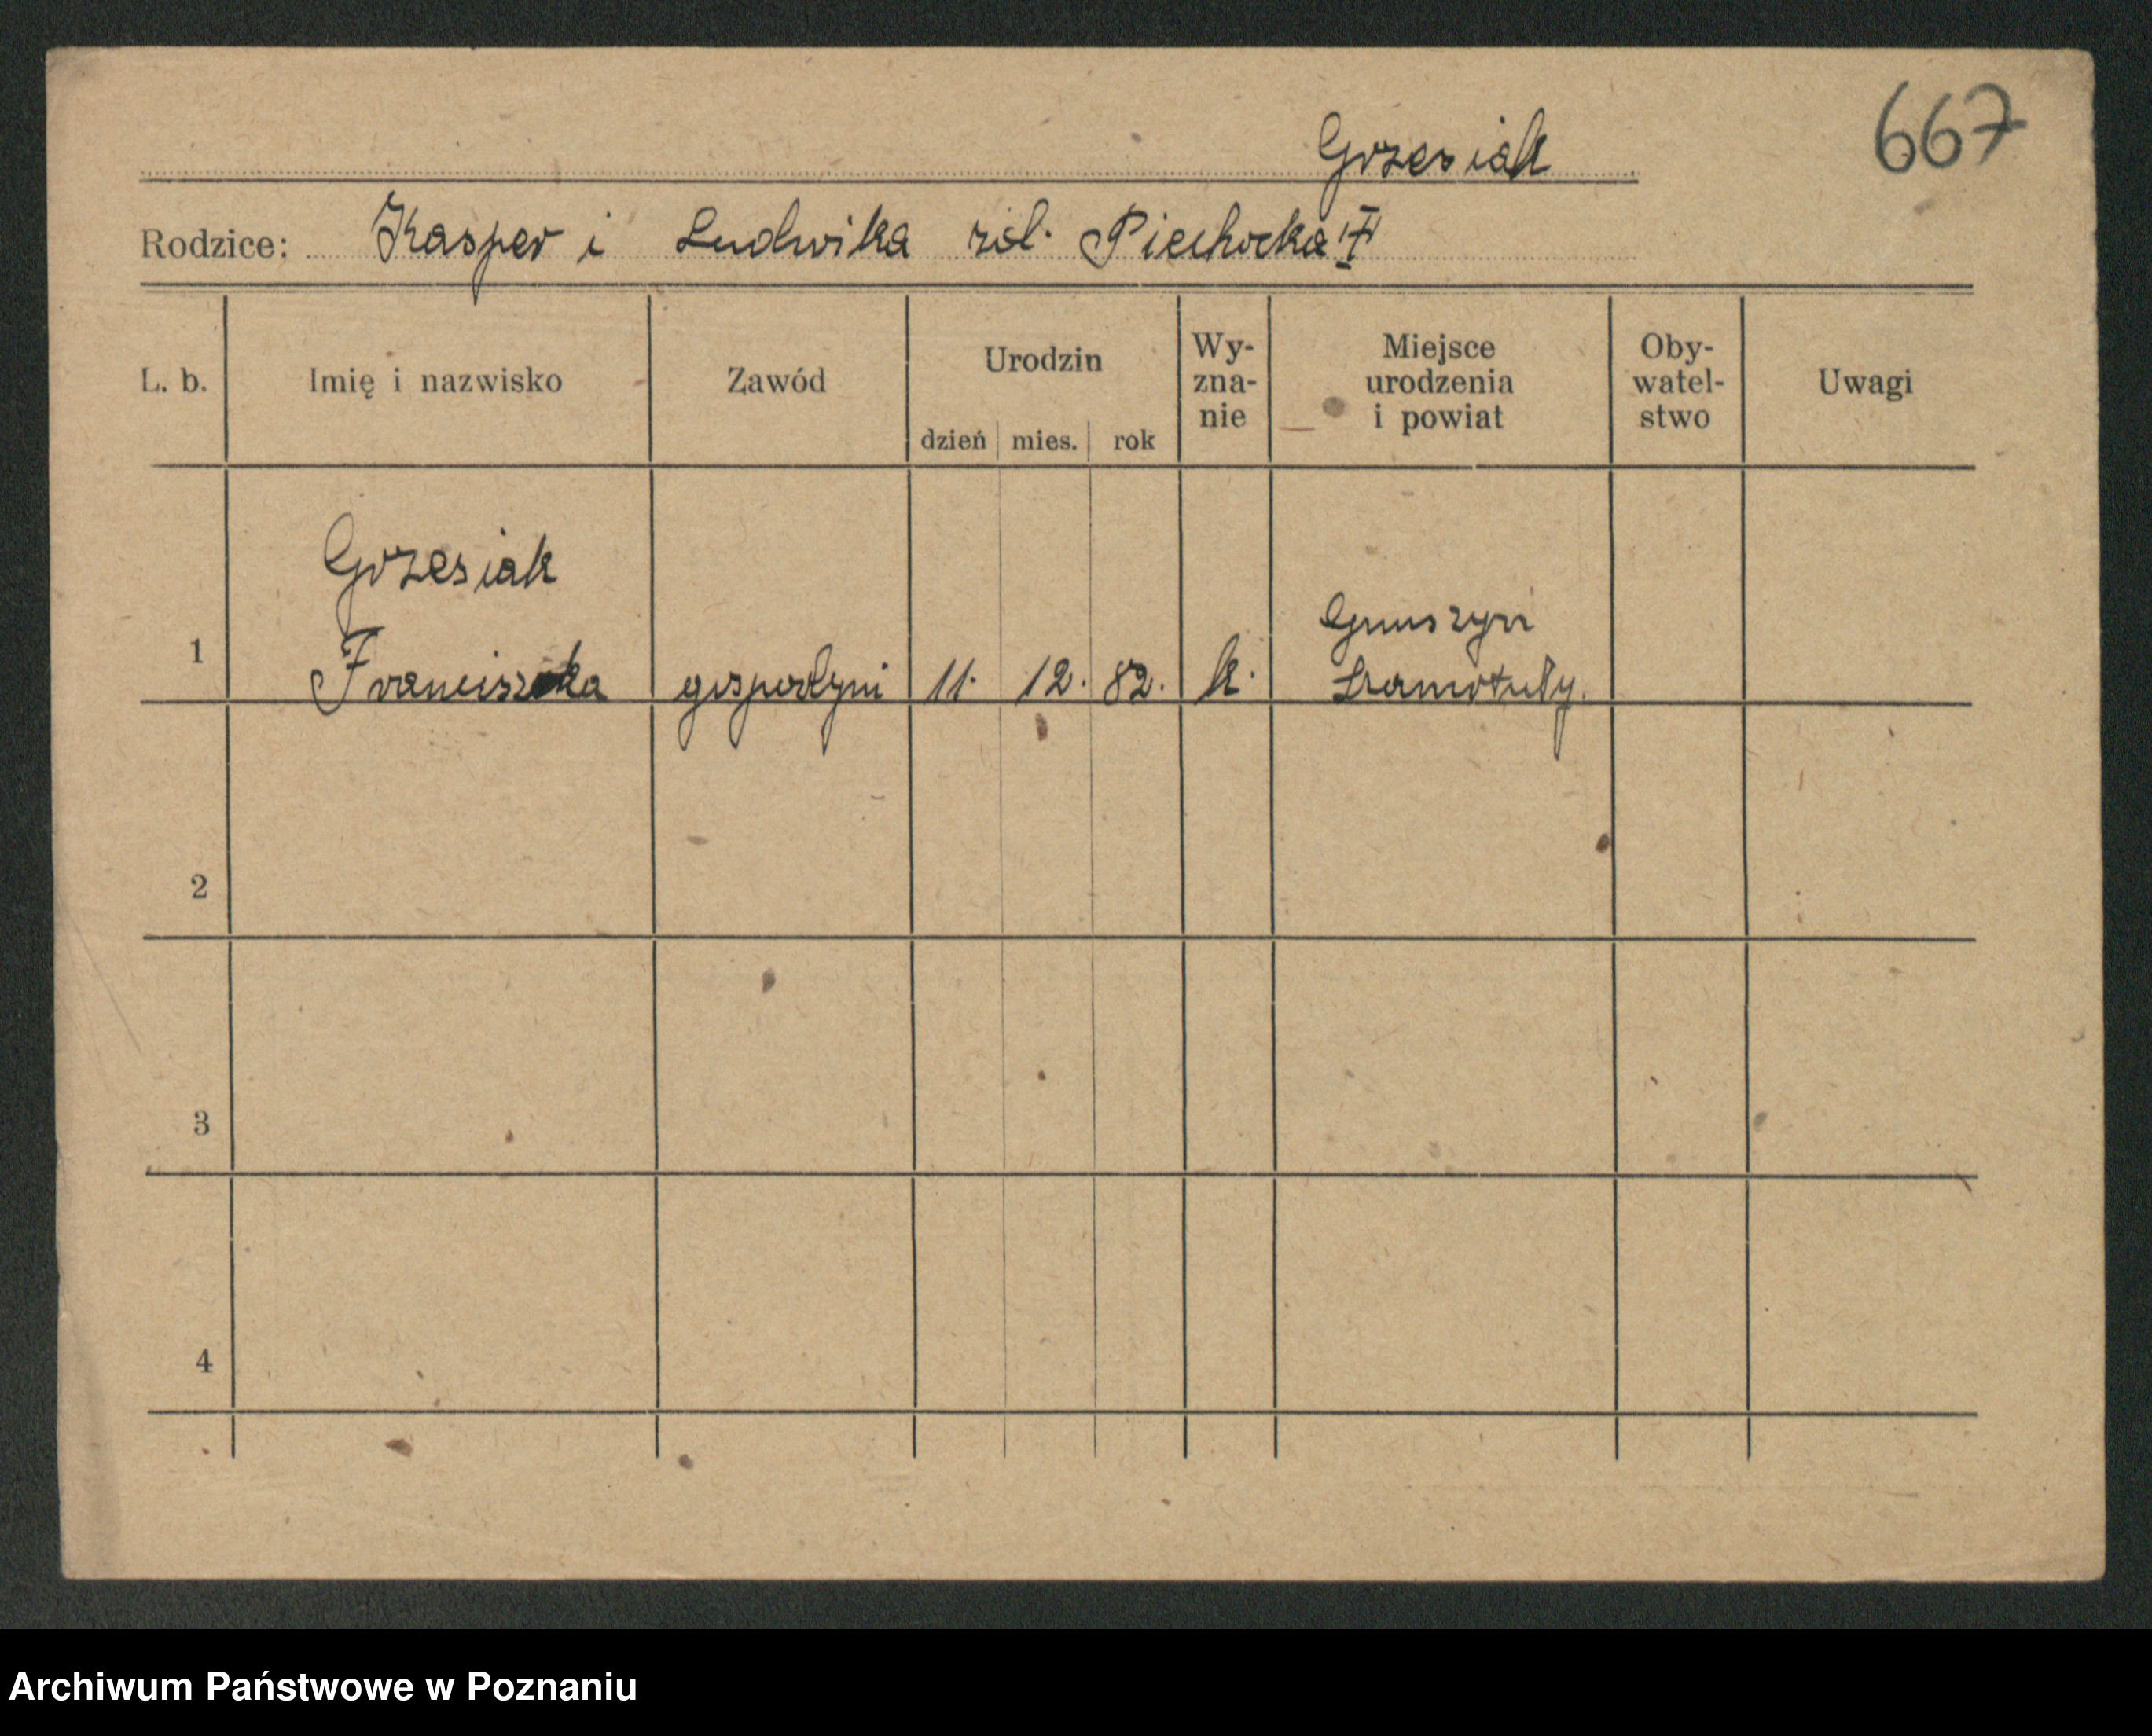 667
Grzesiak
Rodzice: Kasper i Ludwika roł. Piechocka
L. b.
Imię i nazwisko
Zawód
Urodzin
dzień mies. rok
Wy-
zna-
nie
Miejsce
urodzenia
i powiat
Oby-
watel-
stwo
Uwagi
Grzesiak
Gnuszyn
1 Franciszka gospodyni 11. 12. 82. k. Szamotuły.
2
3
4
Archiwum Państwowe w Poznaniu